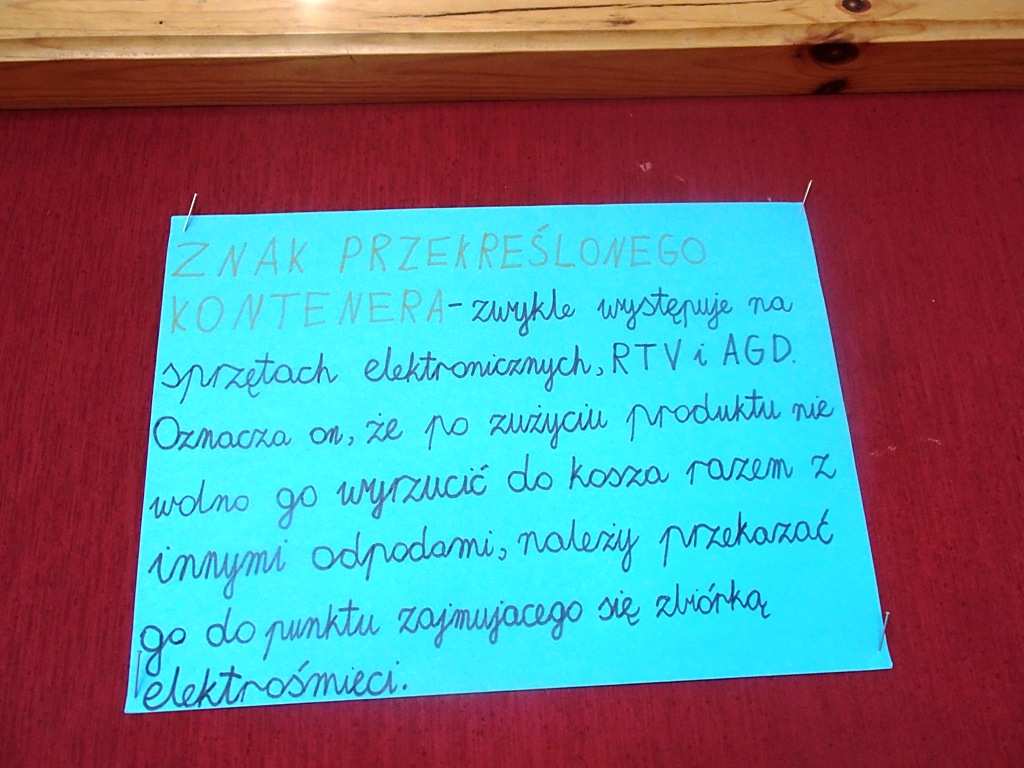 ZNAK PRZEKREŚLONEGO
KONTENERA-zwykle występuje na
sprzętach elektronicznych, RTV i AGD.
Oznacza on, że po zużyciu produktu nie
wolno go wyrzucić do kosza razem z
innymi odpodami, należy przekazać
go do punktu zajmujacego się zbiórką
elektrośmieci.